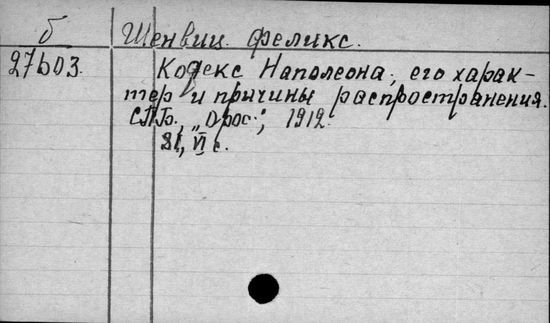 б Шенвиц Феликс.
27603. Кодекс Наполеона, его харак-
тер и причины распространения.
СПБ., „Орос", 1912.
81, VI с.